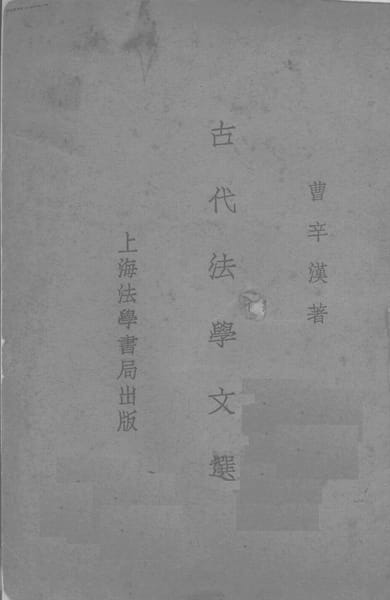 曹辛漢著
古代法學文選
上海法學書局出版